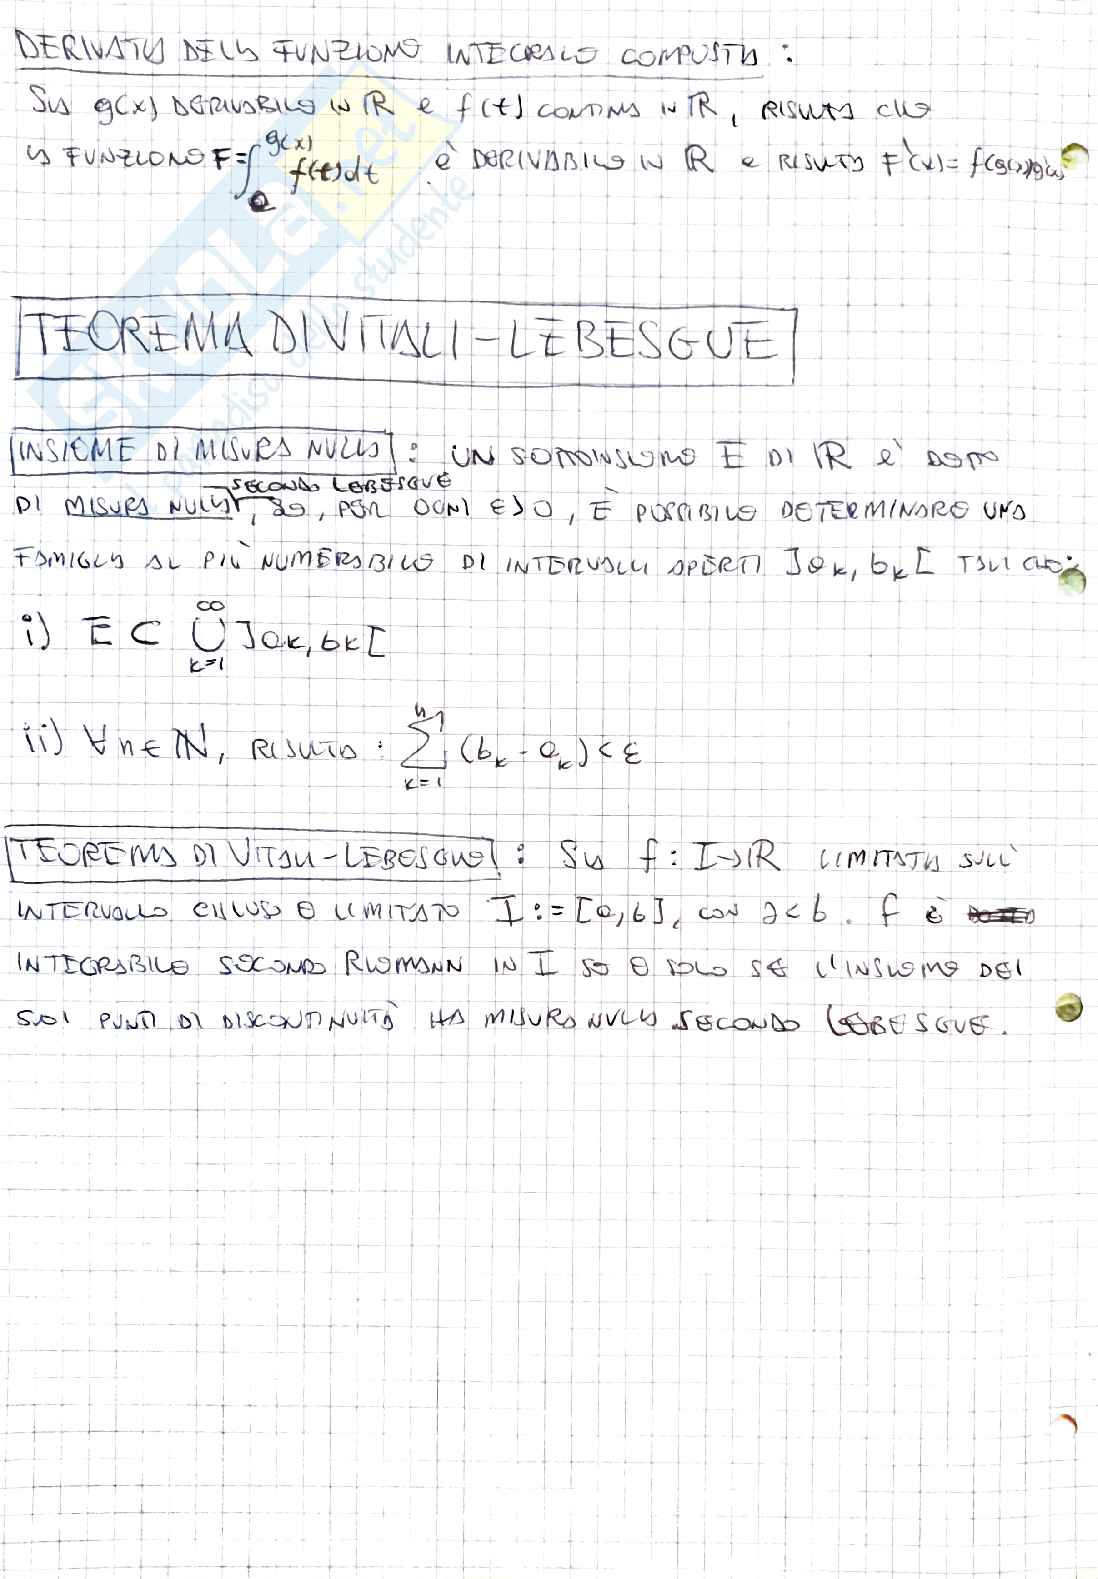 DERIVATA DELLA FUNZIONE INTEGRALE COMPOSTA :
SIA g(x) DERIVABILE IN ℝ E f(t) CONTINUA IN ℝ, RISULTA CHE
LA FUNZIONE F=∫_a^{g(x)} f(t)dt È DERIVABILE IN ℝ E RISULTA F'(x)= f(g(x))g'(x)
TEOREMA DI VITALI-LEBESGUE
INSIEME DI MISURA NULLA : UN SOTTOINSIEME E DI ℝ È DETTO
DI MISURA NULLA SECONDO LEBESGUE, SE, PER OGNI ε>0, È POSSIBILE DETERMINARE UNA
FAMIGLIA AL PIÙ NUMERABILE DI INTERVALLI APERTI ]a_k, b_k[ TALI CHE:
i) E ⊂ ⋃_{k=1}^{∞} ]a_k, b_k[
ii) ∀n∈ℕ, RISULTA : ∑_{k=1}^{n} (b_k - a_k) < ε
TEOREMA DI VITALI-LEBESGUE : SIA f: I→ℝ LIMITATA SULL'
INTERVALLO CHIUSO E LIMITATO I := [a,b], CON a<b. f È
INTEGRABILE SECONDO RIEMANN IN I SE E SOLO SE L'INSIEME DEI
SUOI PUNTI DI DISCONTINUITÀ HA MISURA NULLA SECONDO LEBESGUE.
SKUOLA.net
paradiso dello studente